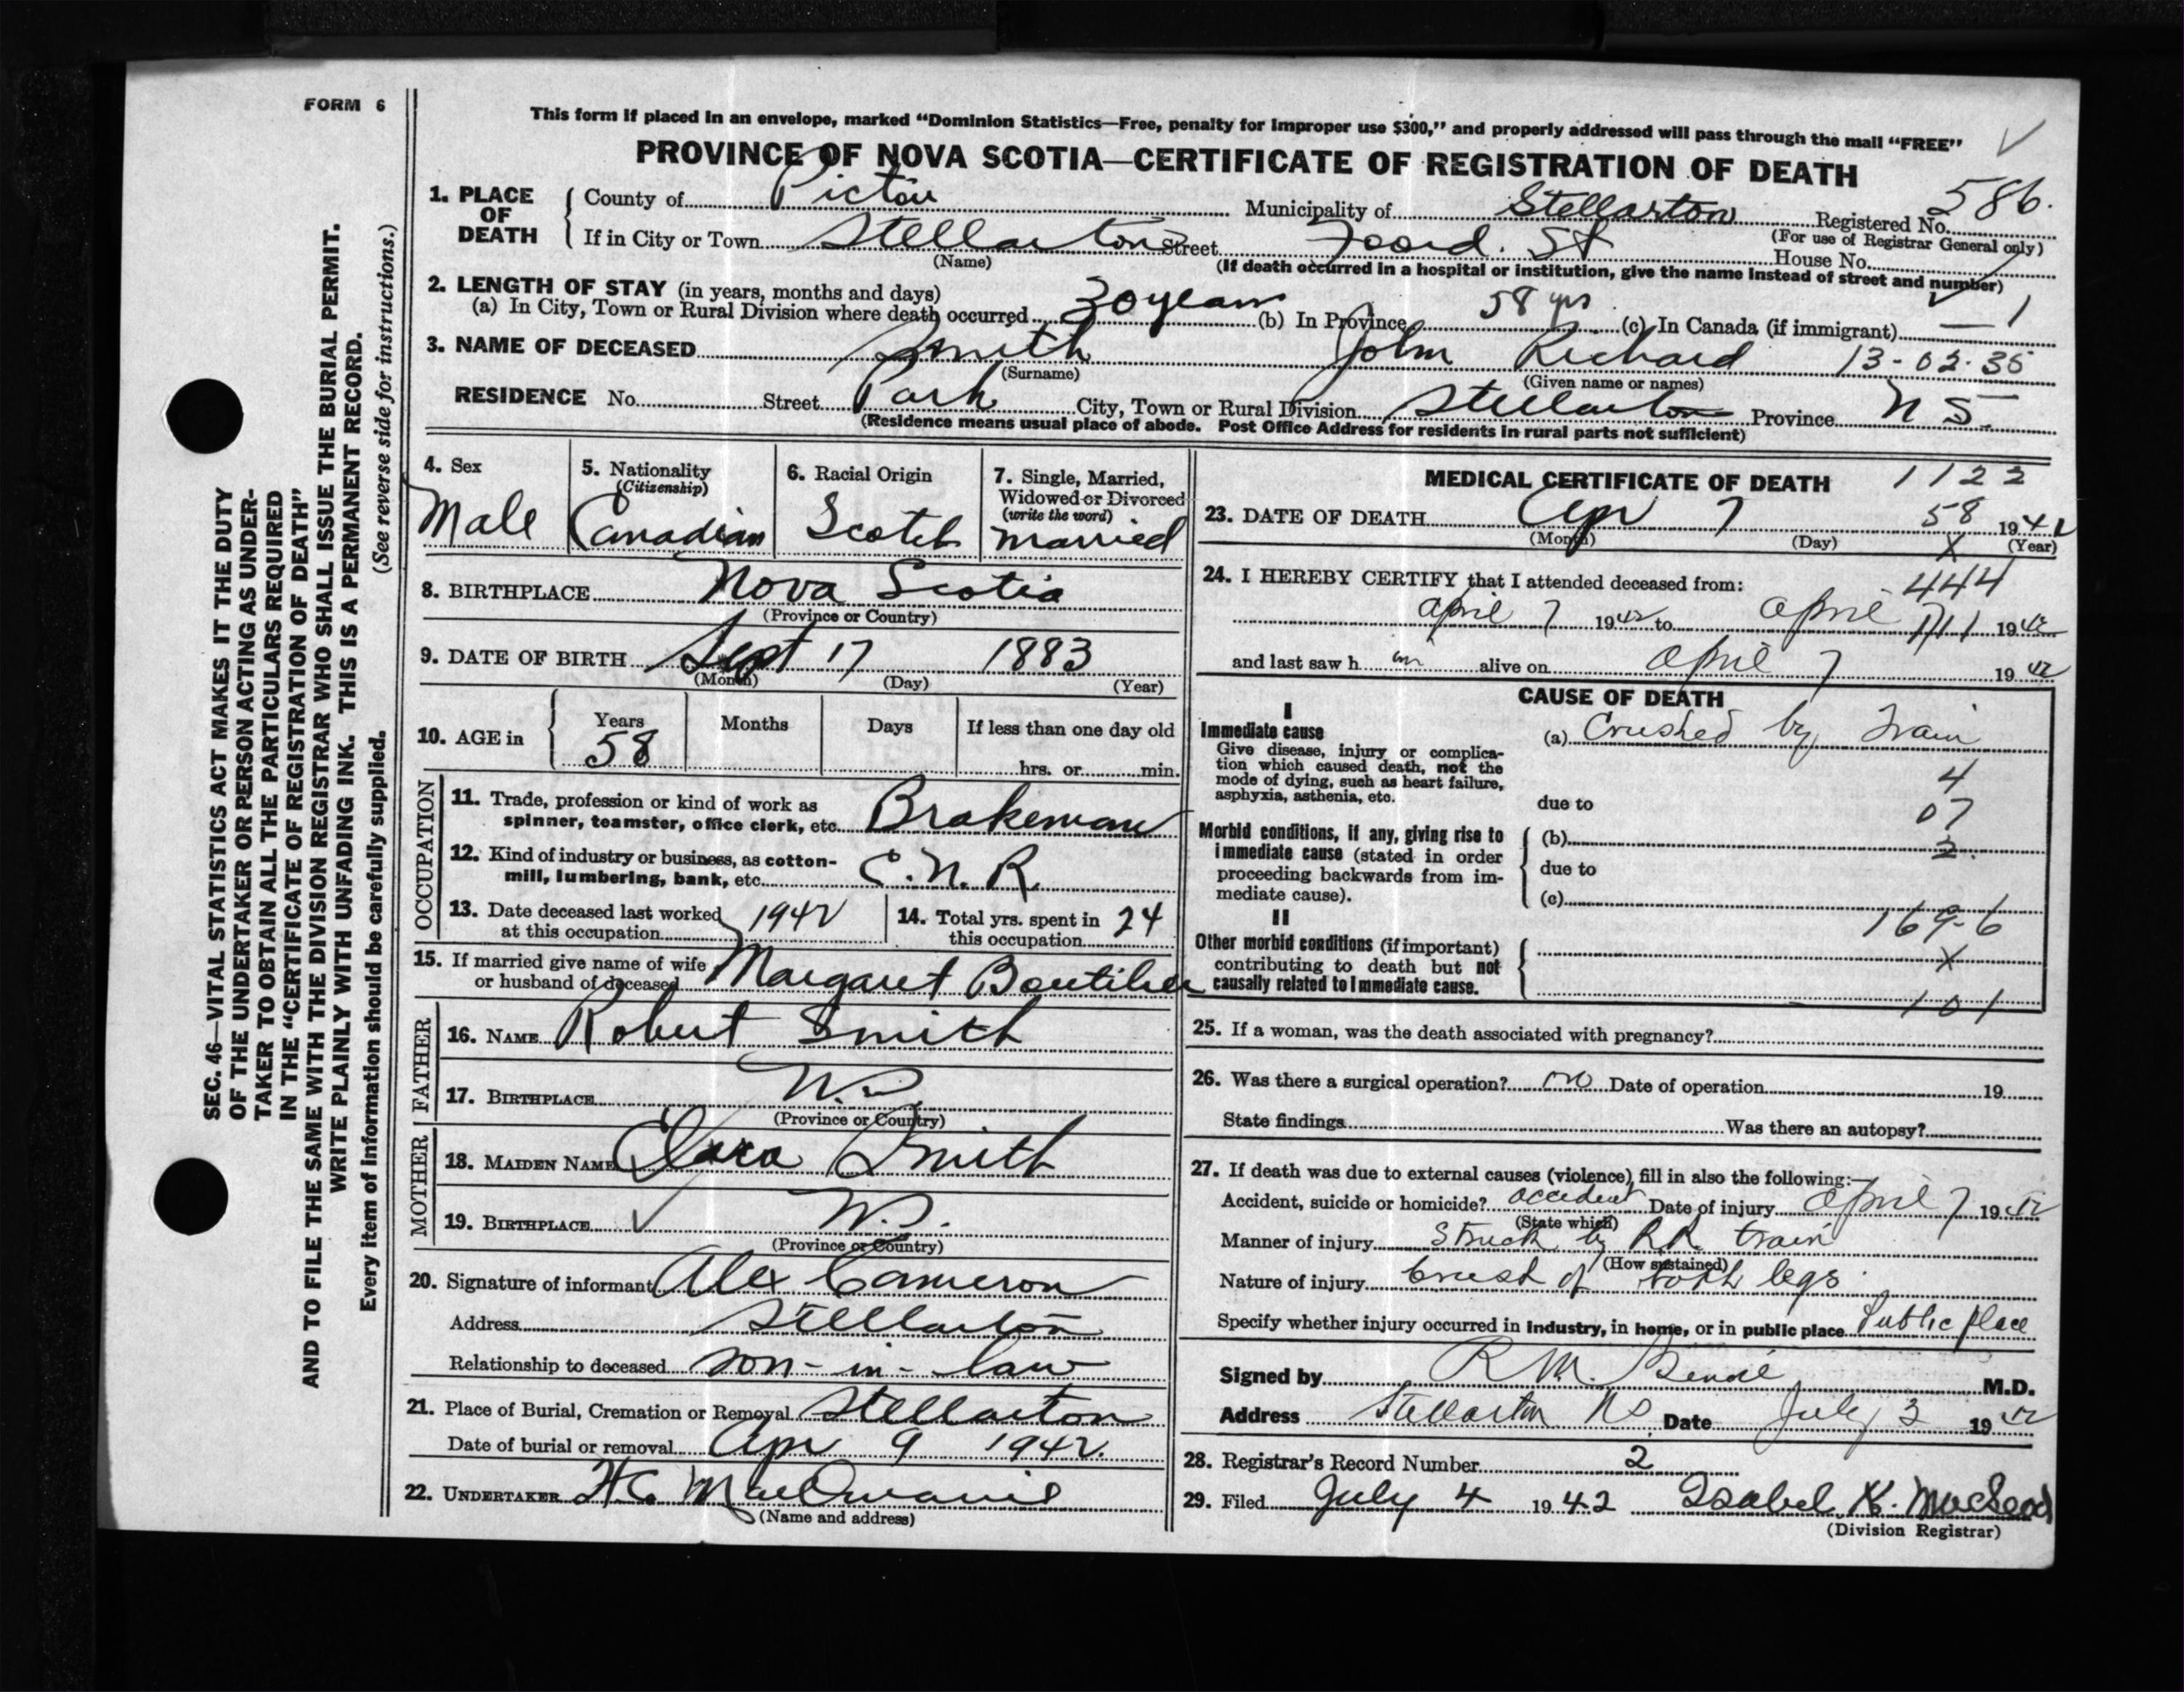 FORM 6
This form if placed in an envelope, marked "Dominion Statistics—Free, penalty for improper use $300," and properly addressed will pass through the mail "FREE"
PROVINCE OF NOVA SCOTIA—CERTIFICATE OF REGISTRATION OF DEATH
1. PLACE OF DEATH
County of Pictou Municipality of Stellarton Registered No. 586.
(For use of Registrar General only)
If in City or Town Stellarton Street Foord. St House No.
(Name) (If death occurred in a hospital or institution, give the name instead of street and number)
2. LENGTH OF STAY (in years, months and days)
(a) In City, Town or Rural Division where death occurred 30 years (b) In Province 58 yrs (c) In Canada (if immigrant) — 1
3. NAME OF DECEASED Smith John Richard 13-02-35
(Surname) (Given name or names)
RESIDENCE No. Street Park City, Town or Rural Division Stellarton Province N S.
(Residence means usual place of abode. Post Office Address for residents in rural parts not sufficient)
4. Sex
Male
5. Nationality
(Citizenship)
Canadian
6. Racial Origin
Scotch
7. Single, Married,
Widowed or Divorced
(write the word)
Married
8. BIRTHPLACE Nova Scotia
(Province or Country)
9. DATE OF BIRTH Sept 17 1883
(Month) (Day) (Year)
10. AGE in
Years Months Days If less than one day old
58 hrs. or min.
OCCUPATION
11. Trade, profession or kind of work as
spinner, teamster, office clerk, etc. Brakeman
12. Kind of industry or business, as cotton-
mill, lumbering, bank, etc. C.N.R.
13. Date deceased last worked
at this occupation 1942
14. Total yrs. spent in
this occupation 24
15. If married give name of wife
or husband of deceased Margaret Boutilier
FATHER
16. NAME Robert Smith
17. BIRTHPLACE N.S.
(Province or Country)
MOTHER
18. MAIDEN NAME Clara Smith
19. BIRTHPLACE N.S.
(Province or Country)
20. Signature of informant Alex Cameron
Address Stellarton
Relationship to deceased son-in-law
21. Place of Burial, Cremation or Removal Stellarton
Date of burial or removal Apr 9 1942.
22. UNDERTAKER
(Name and address)
MEDICAL CERTIFICATE OF DEATH 1122
23. DATE OF DEATH Apr 7 58 1942
(Month) (Day) X (Year)
24. I HEREBY CERTIFY that I attended deceased from: 444
april 7 1942 to april 7 1942
and last saw h im alive on april 7 1942
CAUSE OF DEATH
I
Immediate cause
Give disease, injury or complica-
tion which caused death, not the
mode of dying, such as heart failure,
asphyxia, asthenia, etc.
(a) Crushed by Train
4
due to 07
Morbid conditions, if any, giving rise to
immediate cause (stated in order
proceeding backwards from im-
mediate cause).
(b) 2.
due to
(c)
169-6
II
Other morbid conditions (if important)
contributing to death but not
causally related to immediate cause.
X
101
25. If a woman, was the death associated with pregnancy?
26. Was there a surgical operation? no Date of operation 19
State findings Was there an autopsy?
27. If death was due to external causes (violence) fill in also the following:—
Accident, suicide or homicide? accident Date of injury april 7 1942
(State which)
Manner of injury Struck by RR train
(How sustained)
Nature of injury crush of both legs
Specify whether injury occurred in industry, in home, or in public place Public place
Signed by R M. M.D.
Address Stellarton NS Date July 3 1942
28. Registrar's Record Number 2
29. Filed July 4 1942 Isabel K. MacLeod
(Division Registrar)
SEC. 46—VITAL STATISTICS ACT MAKES IT THE DUTY
OF THE UNDERTAKER OR PERSON ACTING AS UNDER-
TAKER TO OBTAIN ALL THE PARTICULARS REQUIRED
IN THE "CERTIFICATE OF REGISTRATION OF DEATH"
AND TO FILE THE SAME WITH THE DIVISION REGISTRAR WHO SHALL ISSUE THE BURIAL PERMIT.
WRITE PLAINLY WITH UNFADING INK. THIS IS A PERMANENT RECORD.
Every item of information should be carefully supplied. (See reverse side for instructions.)